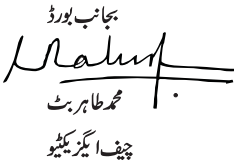 بجانب بورڈ
محمد طاہر بٹ
چیف ایگزیکٹیو